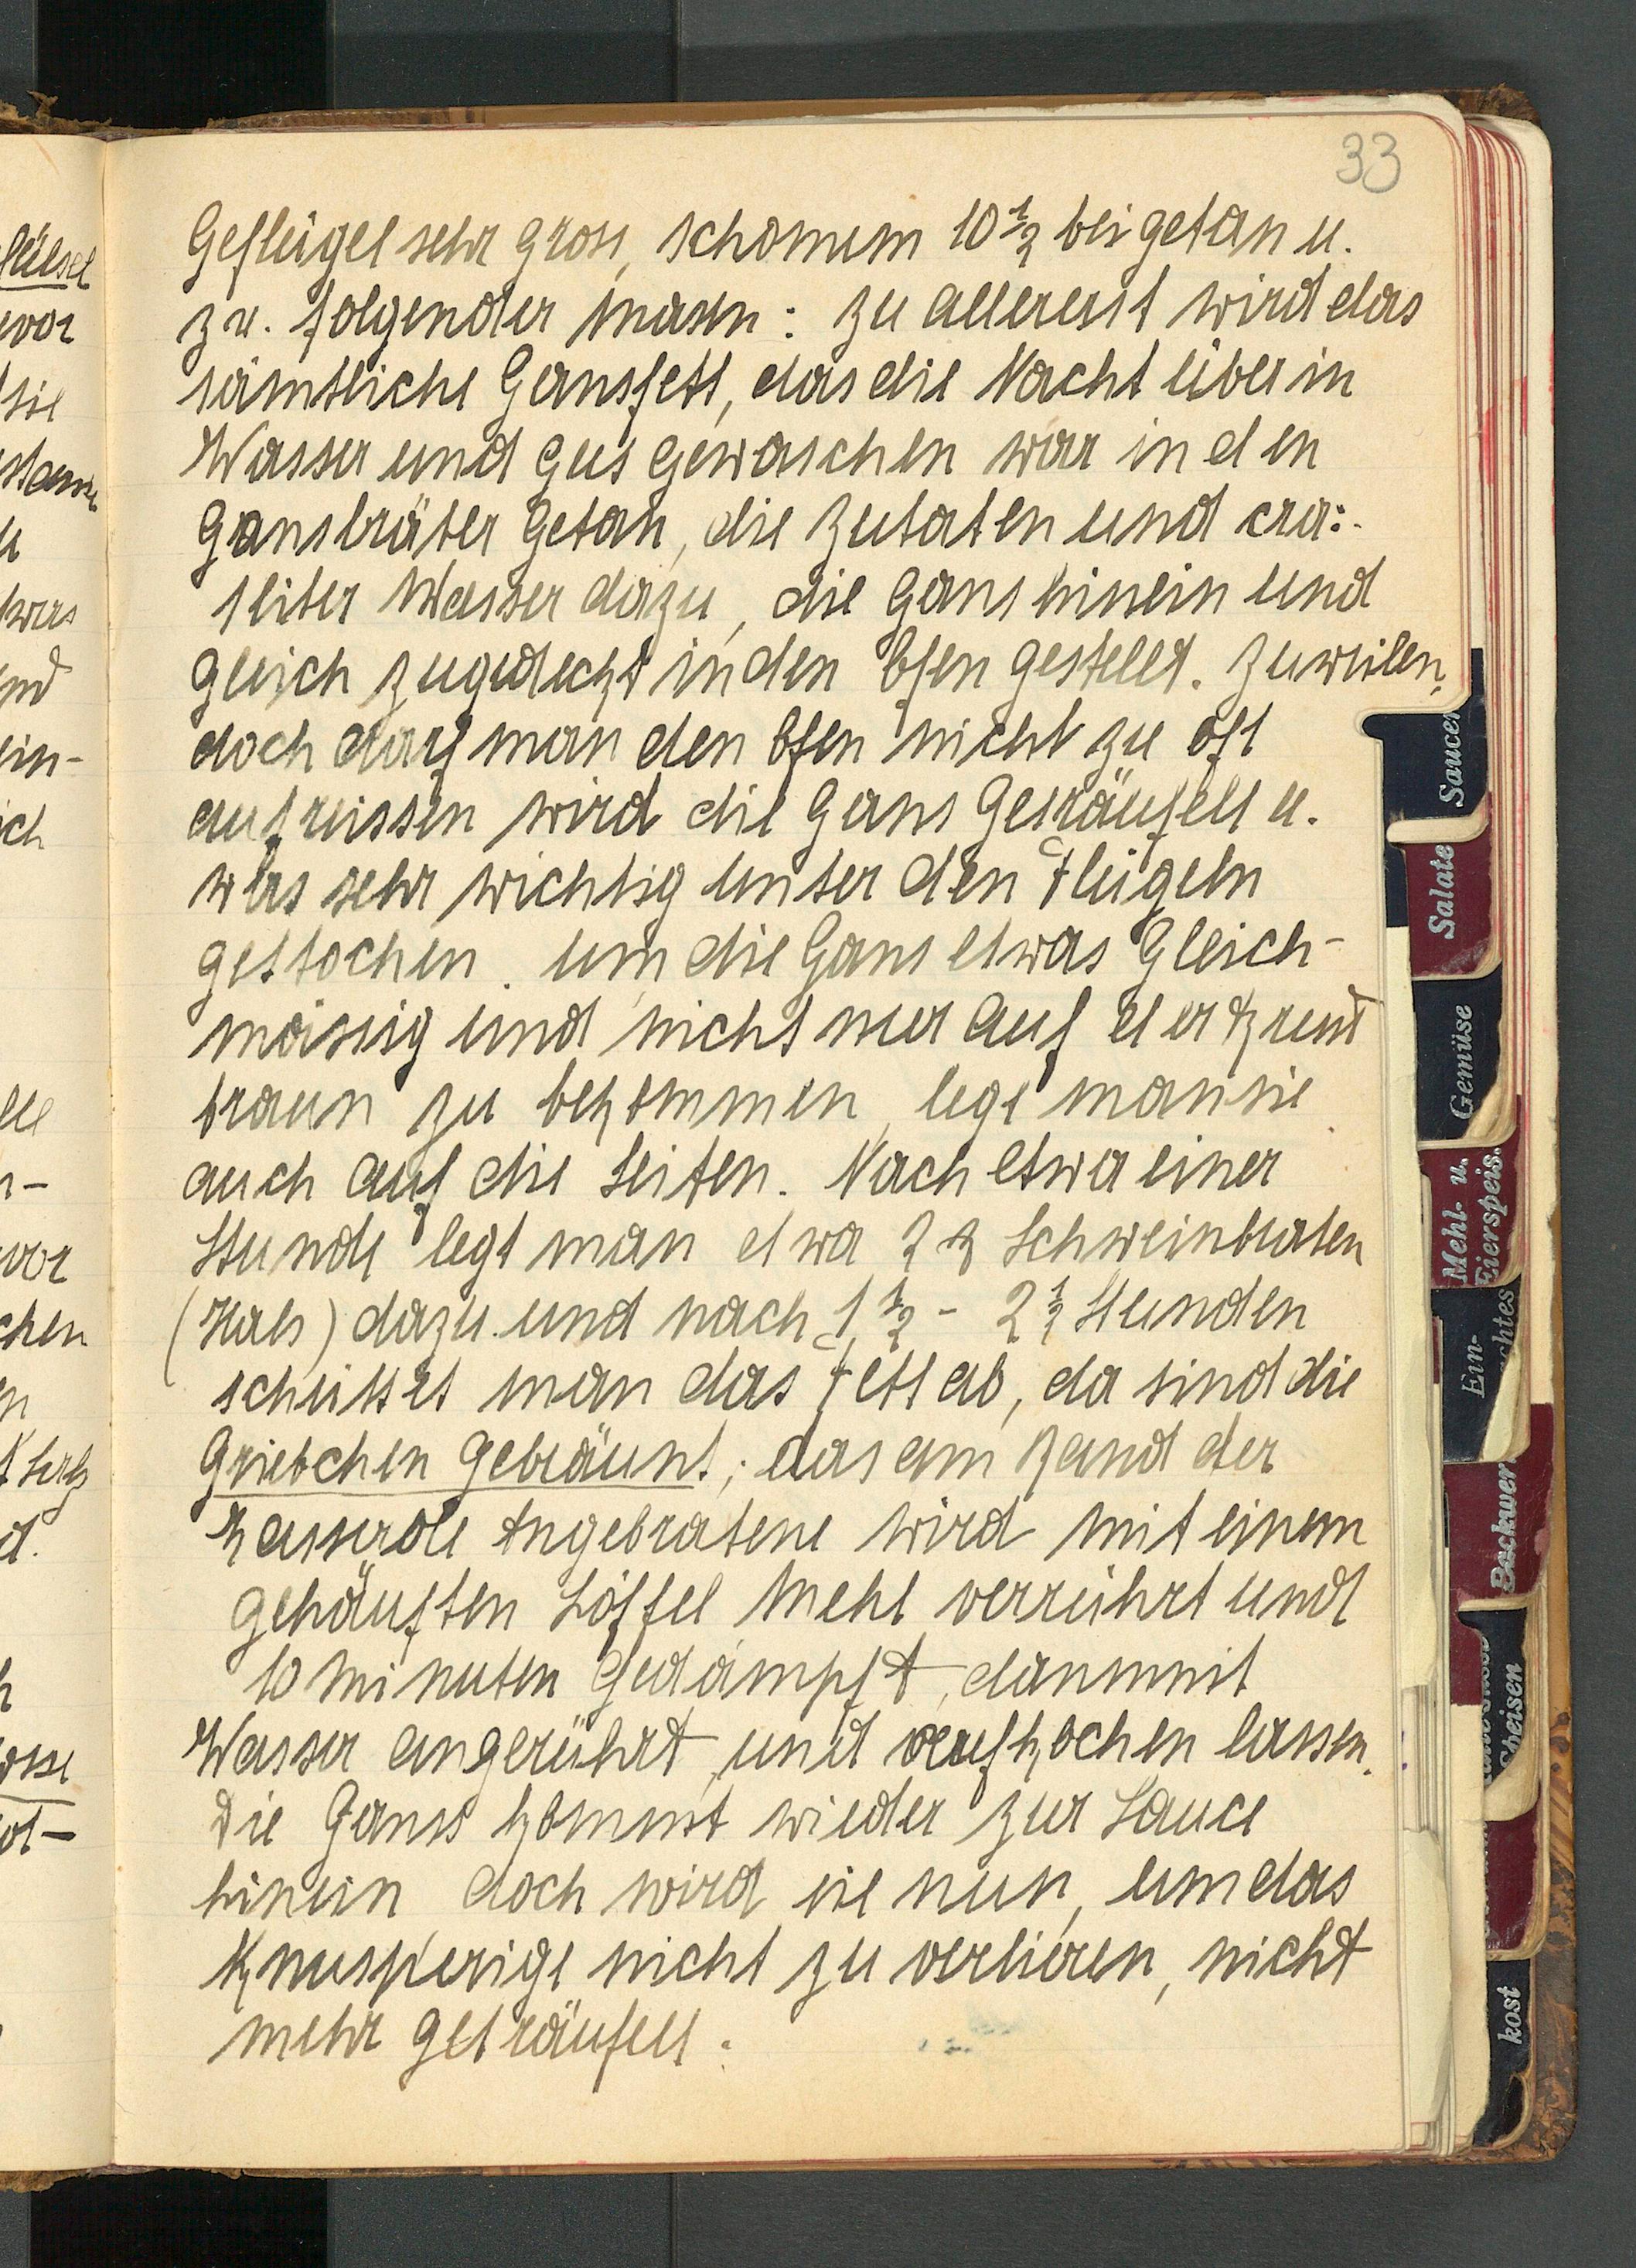 33
Geflügel sehr gross, schonum 10 1/2 beigetan u.
zw. folgender masen: zu allererst wird das
sämtliche Gansfett, das die Nacht über in
Wasser und gut gewaschen war in den
Gansbräter getan, die Zutaten und cra:.
1 liter Wasser dazu, die Gans hinein und
gleich zugedeckt in den Ofen gestellt. Zuweilen,
doch darf man den Ofen nicht zu oft
aufreissen wird die Gans geträufelt u.
was sehr wichtig unter den Flügeln
gestochen. um die Gans etwas gleich-
mässig und nicht nur auf der Brust
braun zu bekommen, lege man sie
auch auf die Seiten. Nach etwa einer
Stunde legt man etwa Schweinbraten
(Hals) dazu und nach 1 1/2 - 2 1/2 Stunden
schüttet man das Fett ab, da sind die
Griebchen gebräunt; das am Rand der
Kasserole Angebratene wird mit einem
gehäuften Löffel Mehl verrührt und
10 Minuten gedämpft, dann mit
Wasser angerührt, und aufkochen lassen.
Die Gans kommt wieder zur Sauce
hinein doch wird sie nun, um das
Knusperige nicht zu verlieren, nicht
mehr geträufelt.
Saucen
Salate
Gemüse
Mehl- u.
Eierspeis.
Ein-
Backwer
Speisen
kost